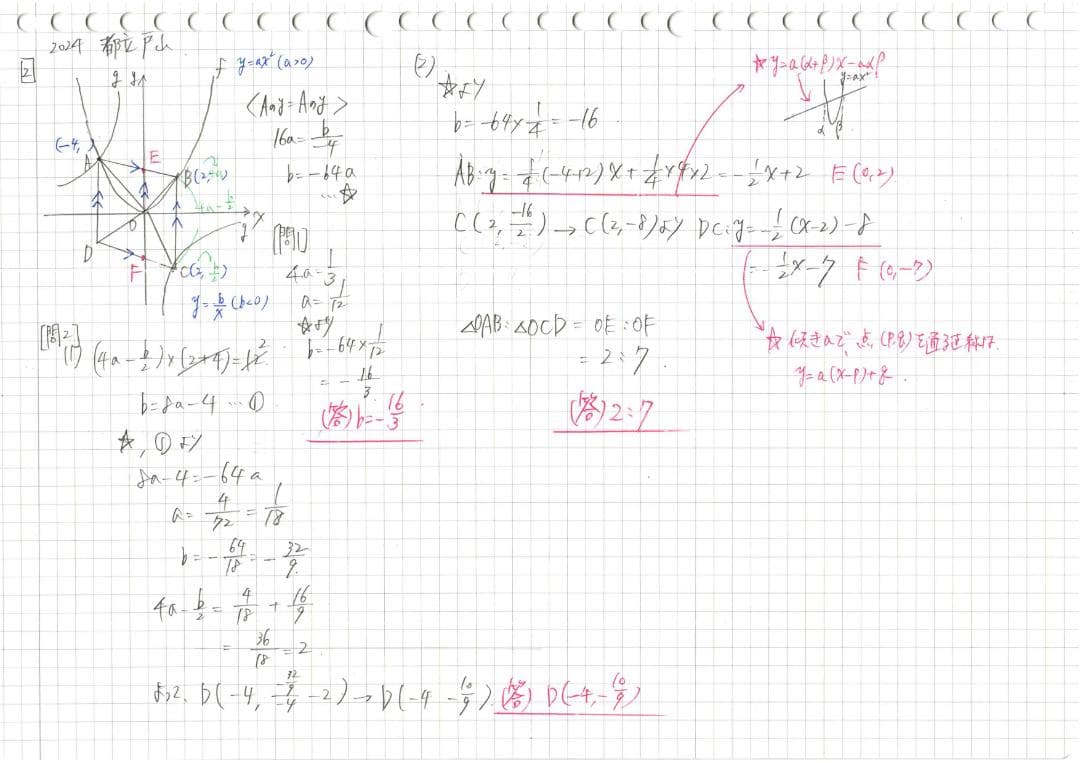 2024 都立戸山
2
f y=ax² (a>0)
g y
(-4, )
A
E
B(2, 4a)
4a-b/2
O
x
g
D
F
C(2, b/2)
y=b/x (b<0)
<Aのy=Aのy>
16a=b/-4
b=-64a
…☆
[問1]
4a=1/3
a=1/12
☆より
b=-64×1/12
=-16/3
(答) b=-16/3
[問2]
(1) (4a-b/2)×(2+4)=12
b=8a-4 …①
☆, ①より
8a-4=-64a
a=4/72=1/18
b=-64/18=-32/9
4a-b/2=4/18+16/9
=36/18=2
よって、D(-4, -32/9/-4 -2)→D(-4 -10/9) (答) D(-4, -10/9)
(2)
☆より
b=-64×1/4=-16
AB:y=1/4(-4+2)x+1/4×4×2=-1/2x+2 E(0,2)
C(2, -16/2)→C(2,-8)より DC:y=-1/2(x-2)-8
=-1/2x-7 F(0,-7)
△OAB:△OCD=OE:OF
=2:7
(答) 2:7
☆y=a(α+β)x-aαβ
y=ax²
α β
☆傾きaで、点(p,q)を通る直線は
y=a(x-p)+q.